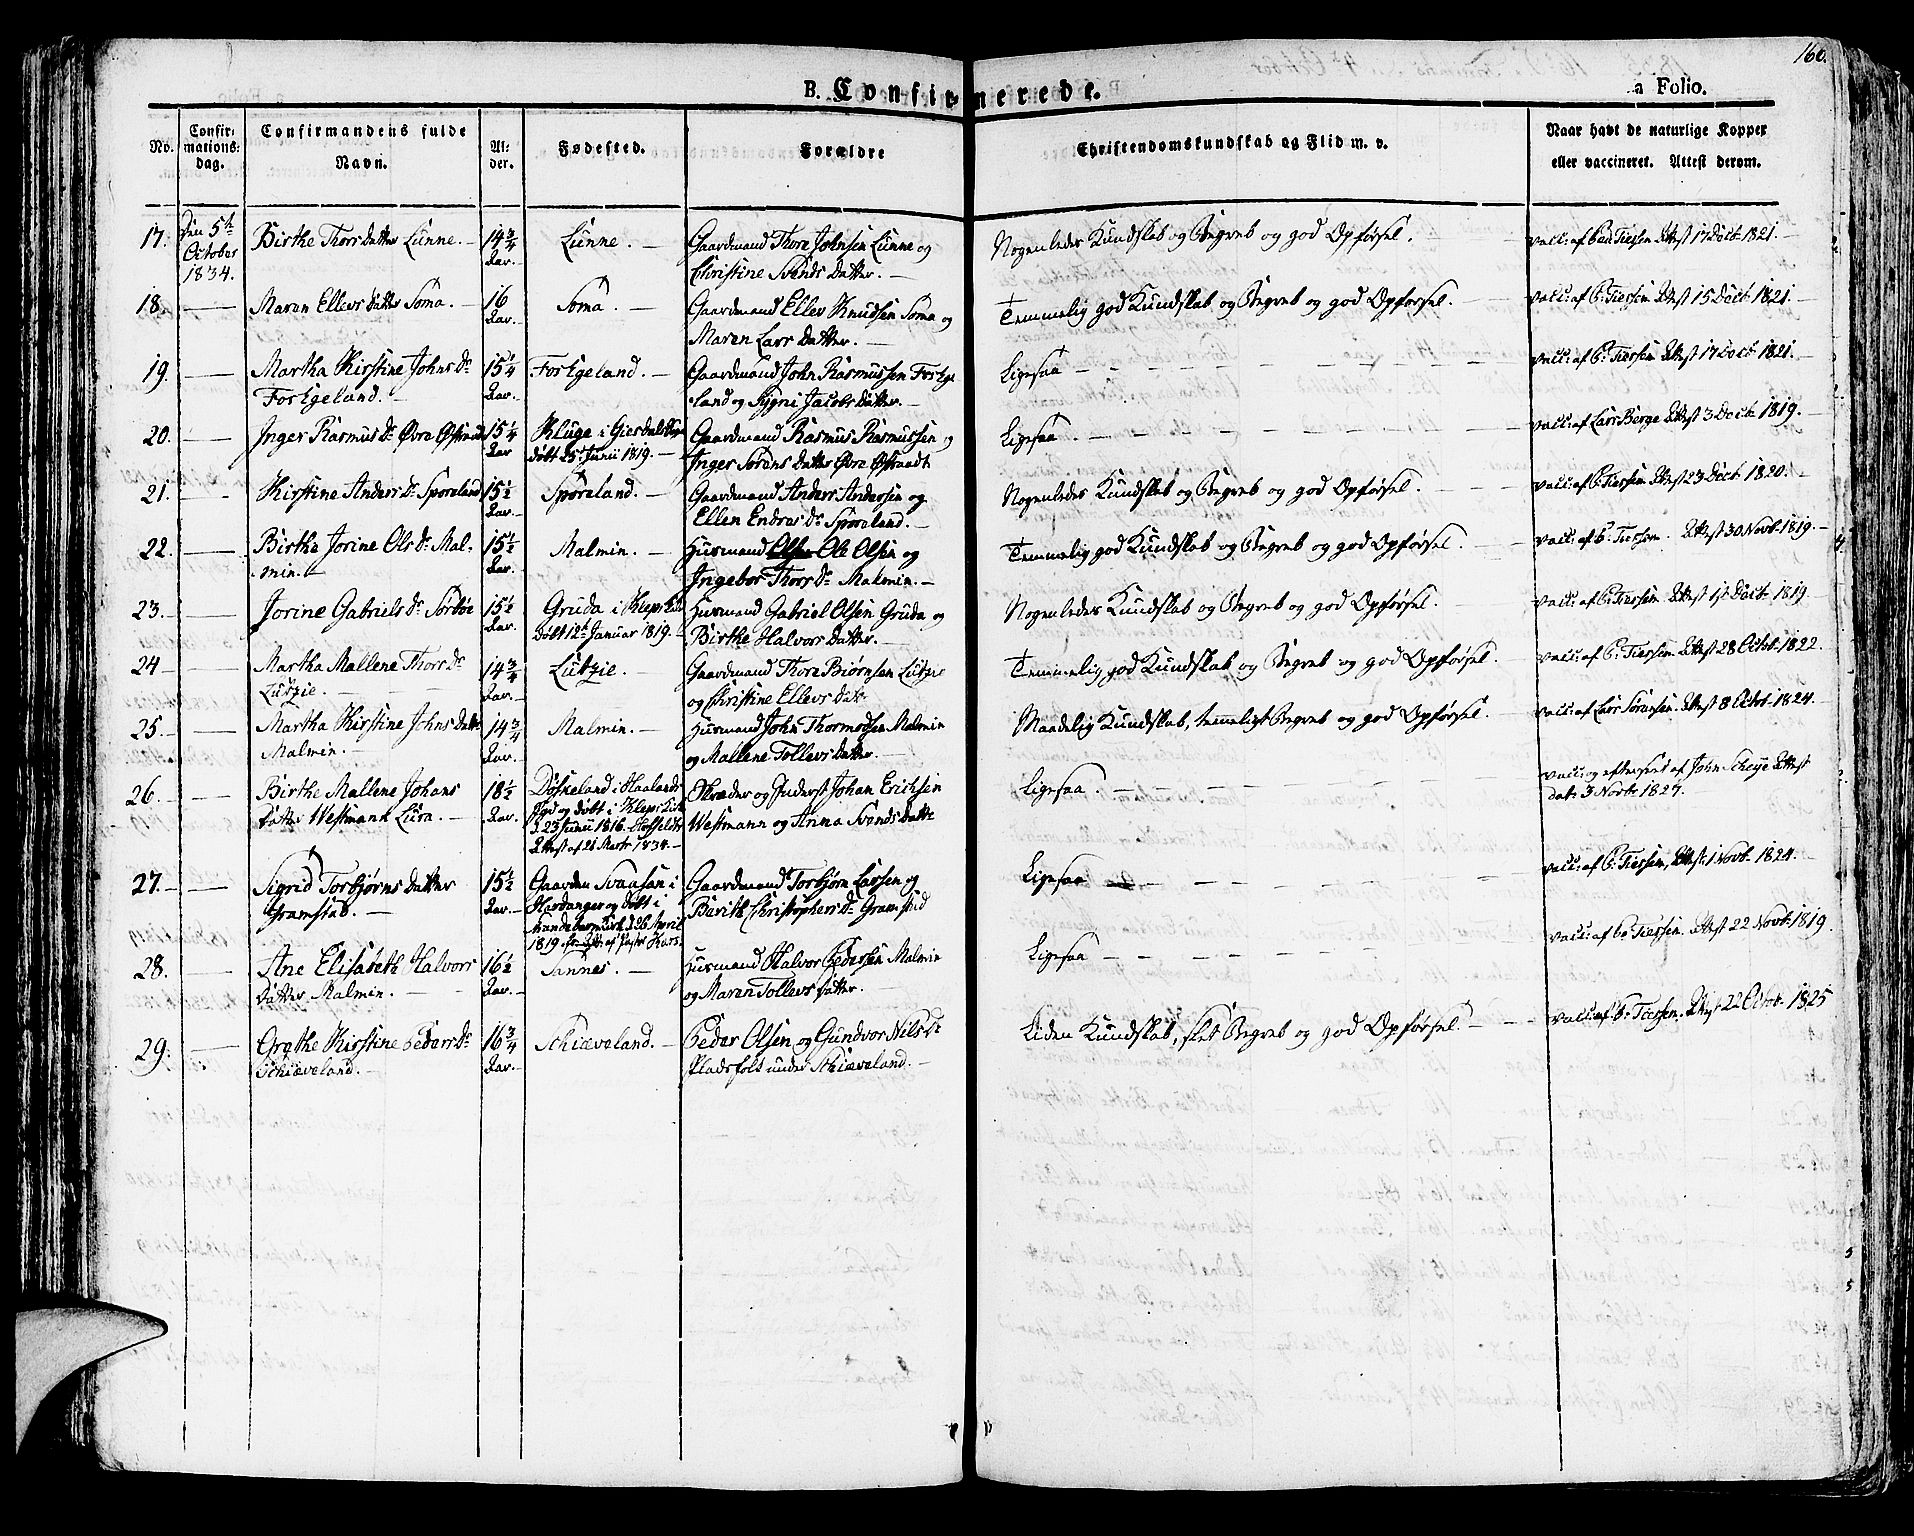 160.
B. Confirmerede. a Folio.
No. Confirmationsdag. Confirmandens fulde Navn. Alder. Fødested. Forældre Christendomskundskab og Flid m. v. Naar havt de naturlige Kopper eller vaccineret. Attest derom.
17. Den 5te October 1834. Birthe Thors Datter Lunne. 14 3/4 Aar. Lunne. Gaardmand Thore Johnsen Lunne og Christine Svends Datter. Nogenledes Kundskab og Begreb og god Opførsel. vacc: af Ped Tiersen Attest 17 Dect. 1821.
18. Maren Ellevs Datter Soma. 16 Aar. Soma. Gaardmand Ellev Knudsen Soma og Maren Lars Datter. Temmelig god Kundskab og Begreb og god Opførsel. vacc: af P. Tiersen Attest 15 Dect. 1821.
19. Martha Kirstine Johns Dr Forsgeland. 15 1/4 Aar. Forsgeland. Gaardmand John Rasmussen Forsgeland og Sygni Jacobs Datter. Ligesaa vacc: af P. Tiersen Attest 17 Dect. 1821.
20. Inger Rasmus Dr Øvre Østraadt 15 1/4 Aar Kluge i Giesdal døbt 25de Junii 1819. Gaardmand Rasmus Rasmussen og Inger Sørens Datter Øvre Østraadt Ligesaa vacc: af Lars Berge Attest 3 Dect. 1819.
21. Kirstine Anders Dr Sporeland 15 1/2 Aar. Sporeland. Gaardmand Anders Andersen og Ellen Endres Dr Sporeland. Nogenledes Kundskab og Begreb og god Opførsel. vacc: af P. Tiersen Attest 23 Dect. 1820.
22. Birthe Jorine Ols Dr Malmin. 15 1/2 Aar. Malmin. Huusmand Ole Olsen og Ingebor Thors Dr Malmin. Temmelig god Kundskab og Begreb og god Opførsel. vacc: af P. Tiersen. Attest 30 Novb. 1819.
23. Jorine Gabriels Dr Sørbøe 15 1/2 Aar. Gruda i Klep døbt 12te Januar 1819. Huusmand Gabriel Olsen Gruda og Birthe Halvors Datter. Nogenledes Kundskab og Begreb og god Opførsel. vacc: af P. Tiersen. Attest Dect. 1819
24 Martha Mallene Thors Dr Lutzie. 14 3/4 Aar. Lutzie. Gaardmand Thore Biørnsen Lutzie og Christine Ellevs Datr Temmelig god Kundskab og Begreb og god Opførsel. vacc: af P. Tiersen. Attest 28 Octob. 1822.
25. Martha Kirstine Johns Datter Malmin. 14 3/4 Aar. Malmin. Huusmand John Thormodsen Malmin og Mallene Tollevs Datter. Maadelig Kundskab, temmeligt Begreb og god Opførsel. vacc: af Lars Sørensen. Attest 8 Octbr. 1824.
26. Birthe Mallene Johans Datter Westmann Lura. 18 1/2 Aar. Døskeland i Haalands og døbt i Klep Kirke d. 23 Junii 1816. Attest af 21 Marts 1834. Skræder og Inderst Johan Erichsen Westmann og Anna Svends Datter Ligesaa. vacc: og efterseet af John Scheje Attest dat: 3 Novbr 1827.
27. Sigrid Torbjørns Datter Gramstad. 15 1/2 Aar. Gaarden Svaasan i Hardanger og døbt i Kirke d. 26 April 1819 Gaardmand Torbjørn Larsen og Barith Christophers Dr Gramstad Ligesaa vacc: af P. Tiersen, Attest 1 Novb. 1824.
28. Ane Elisabeth Halvors Datter Malmin. 16 1/2 Aar. Sannes. Huusmand Halvor Pedersen Malmin og Maren Tollevs Datter. Ligesaa vacc: af P. Tiersen. Attest 22 Novb. 1819.
29. Grethe Kirstine Peders Dr Schiæveland. 16 3/4 Aar. Schiæveland. Peder Olsen og Gundvor Nils Dr Pladsfolk under Schiæveland. Liden Kundskab, slet Begreb og god Opførsel. vacc: af P. Tiersen. Attest 22 Octob. 1825